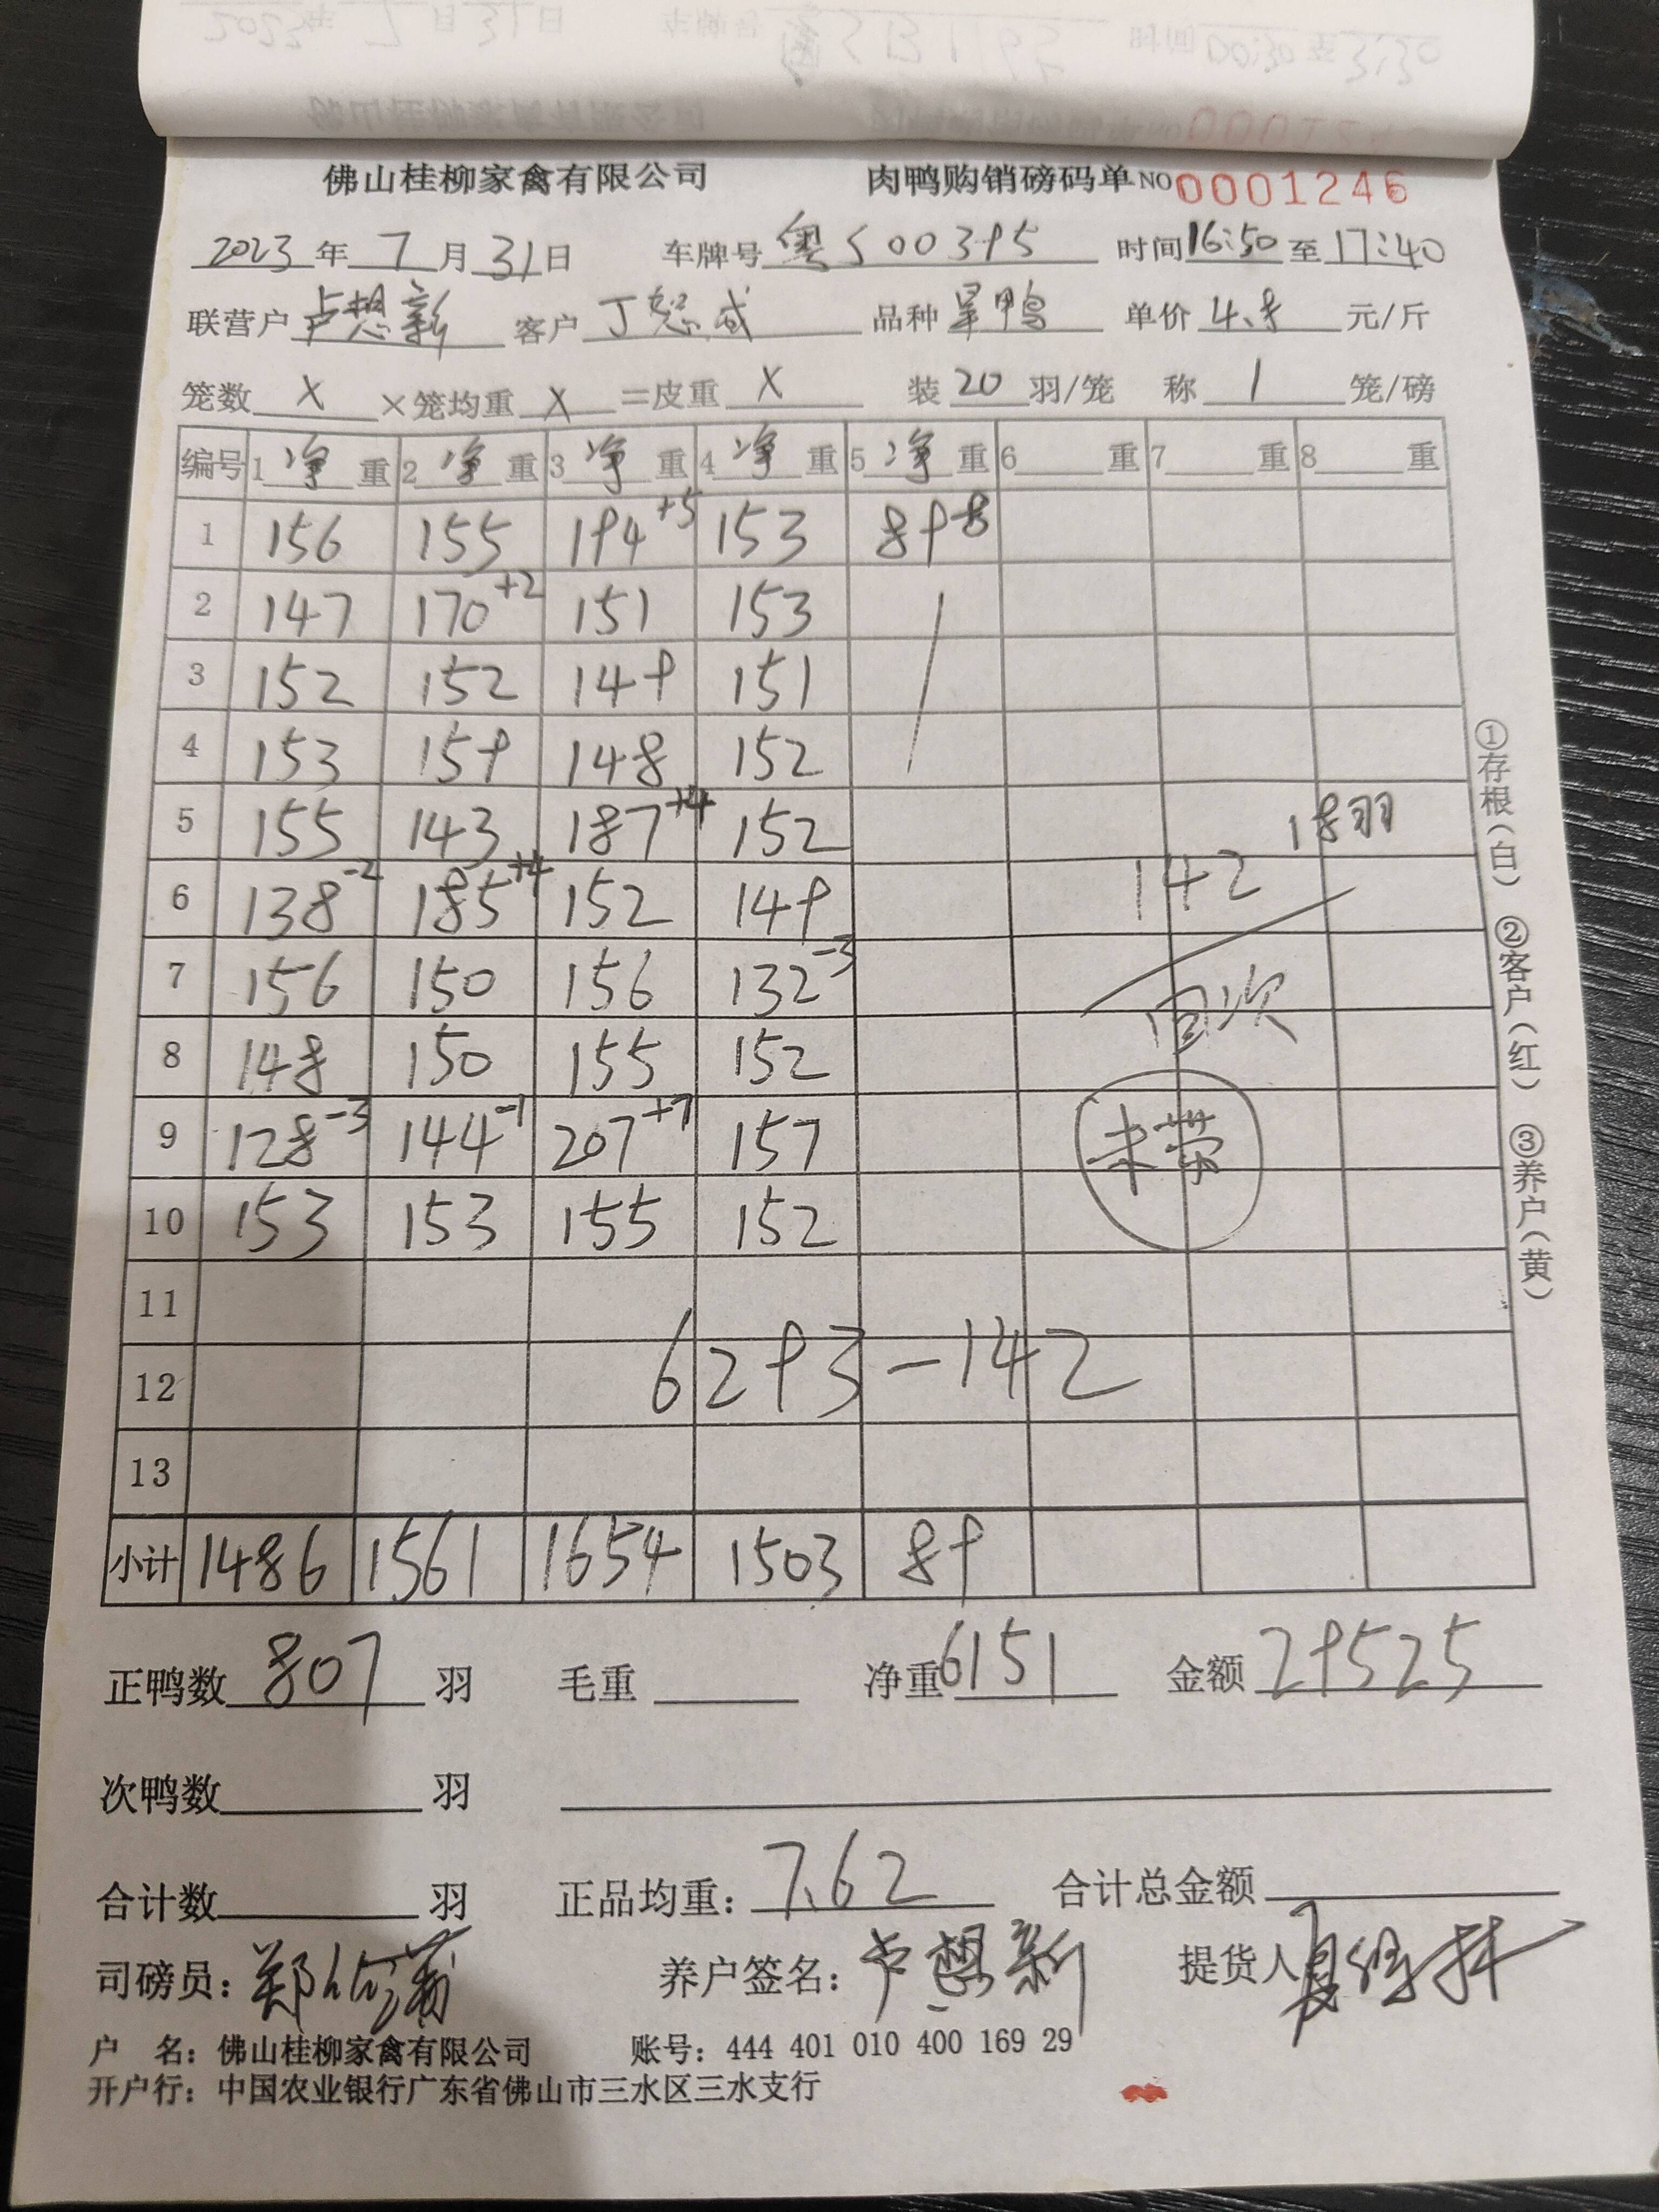 佛山桂柳家禽有限公司 肉鸭购销磅码单 NO 0001246
2023年 7月31日 车牌号 粤S00395 时间 16:50 至 17:40
联营户 卢想新 客户 丁 品种 旱鸭 单价 4.8 元/斤
笼数 X ×笼均重 X =皮重 X 装 20 羽/笼 称 1 笼/磅
编号 1 净 重 2 净 重 3 净 重 4 净 重 5 净 重 6 重 7 重 8 重
1 156 155 194+5 153 89-8
2 147 170+2 151 153
3 152 152 149 151
4 153 159 148 152
5 155 143 187+4 152
18羽
6 138-2 185+4 152 149
142
7 156 150 156 132-3
回次
8 148 150 155 152
9 128-3 144-1 207+7 157
未带
10 153 153 155 152
11
12 6293-142
13
小计 1486 1561 1654 1503 89
①存根(白) ②客户(红) ③养户(黄)
正鸭数 807 羽 毛重 净重 6151 金额 29525
次鸭数 羽
合计数 羽 正品均重: 7.62 合计总金额
司磅员: 郑 养户签名: 卢想新 提货人
户 名: 佛山桂柳家禽有限公司 账号: 444 401 010 400 169 29
开户行: 中国农业银行广东省佛山市三水区三水支行